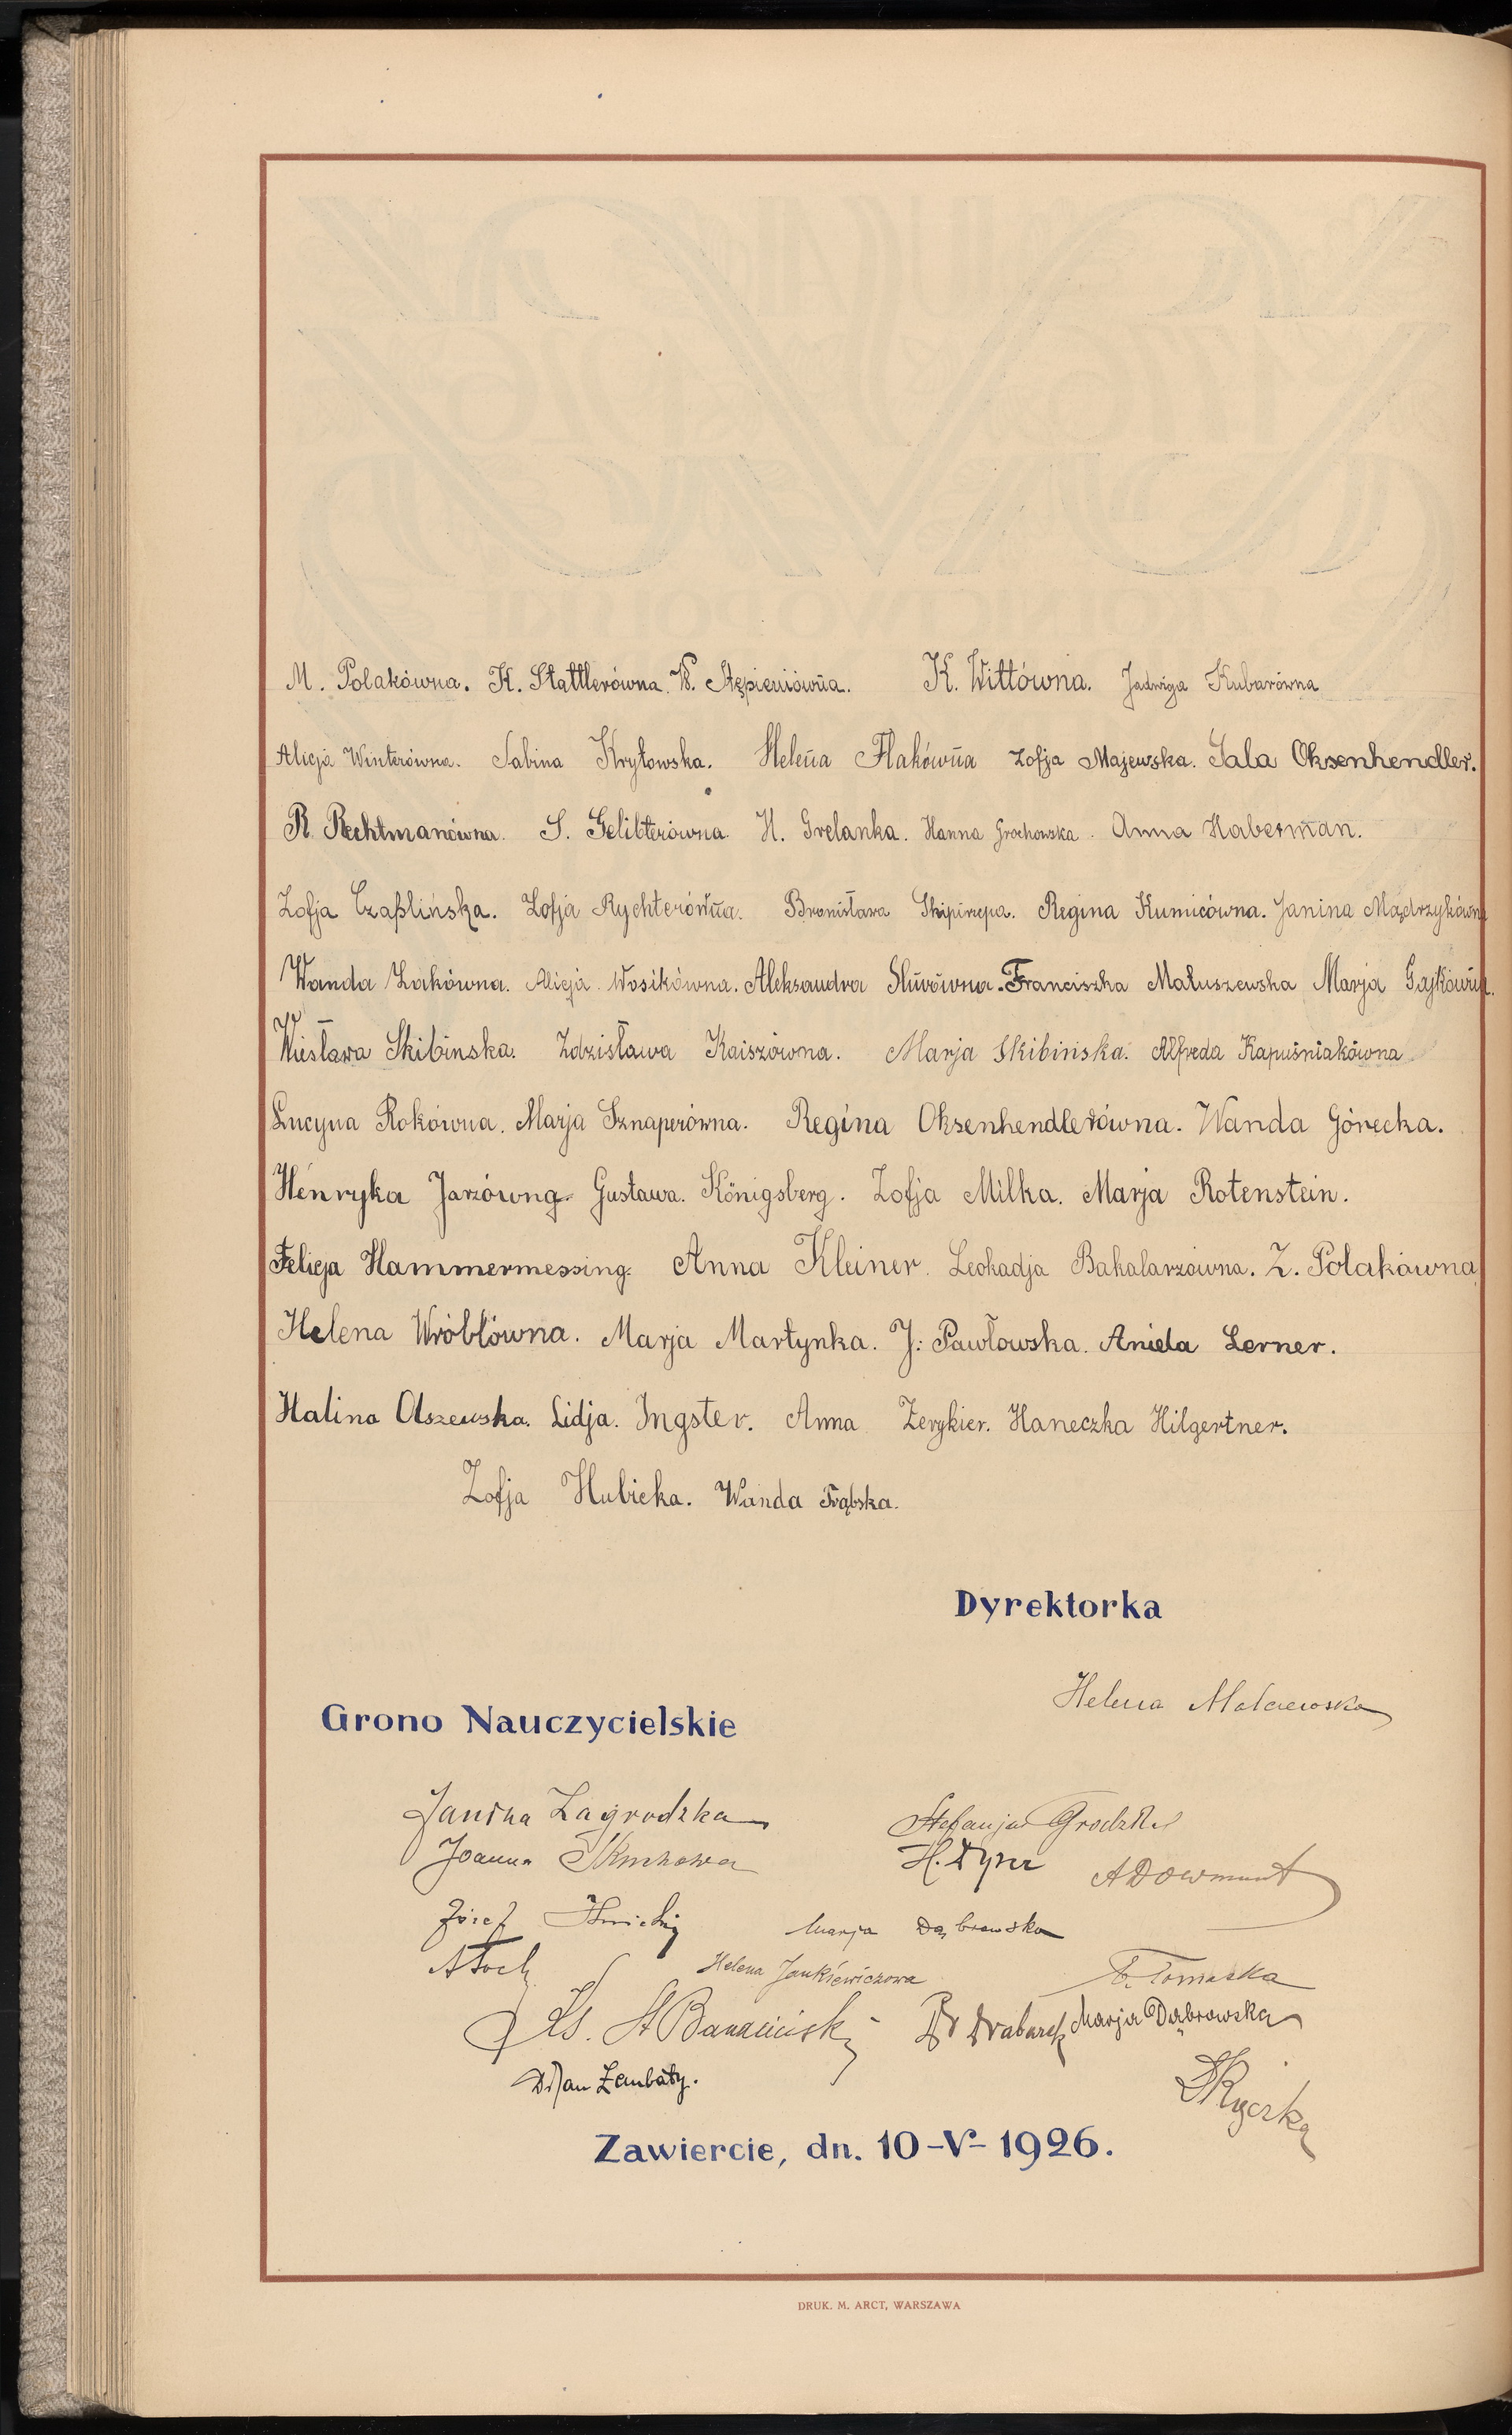 M. Polakówna. K. Stattlerówna. W. Stępieniówna. K. Wittówna. Jadwiga Kubarówna
Alicja Winterówna. Sabina Kryłowska. Helena Flakówna Zofja Majewska. Sala Oksenhendler.
R. Rechtmanówna. S. Gelibterówna. H. Grelanka. Hanna Grochowska. Anna Haberman.
Zofja Czaplińska. Zofja Rychterówna. Bronisława Skipirzepa. Regina Kumicówna. Janina Mądrzykówna
Wanda Żakówna. Alicja Wosikówna. Aleksandra Śluvówna. Franciszka Matuszewska Marja Gajkówna.
Wiesława Skibinska. Zdzisława Kaiszówna. Marja Skibińska. Alfreda Kapuśniakówna
Lucyna Rokówna. Marja Sznaperówna. Regina Oksenhendlerówna. Wanda Górecka.
Henryka Jarzówna. Gustawa. Königsberg. Zofja Milka. Marja Rotenstein.
Felicja Hammermessing. Anna Kleiner. Leokadja Bakalarzówna. Z. Polakówna
Helena Wróblówna. Marja Martynka. J. Pawłowska. Aniela Lerner.
Halina Olszewska. Lidja. Ingster. Anna Zerykier. Haneczka Hilgertner.
Zofja Hubicka. Wanda Trąbska.
Dyrektorka
Helena Malczewska
Grono Nauczycielskie
Janina Zagrodzka Stefanja Grodzka
Joanna H. Dyner A Dowmunt
Józef Marja Dąbrowska
Helena Jankiewiczowa Tomaska
Ks. St Marja Dąbrowska
Dr Jan Zambaty.
Zawiercie, dn. 10-V-1926.
DRUK. M. ARCT, WARSZAWA